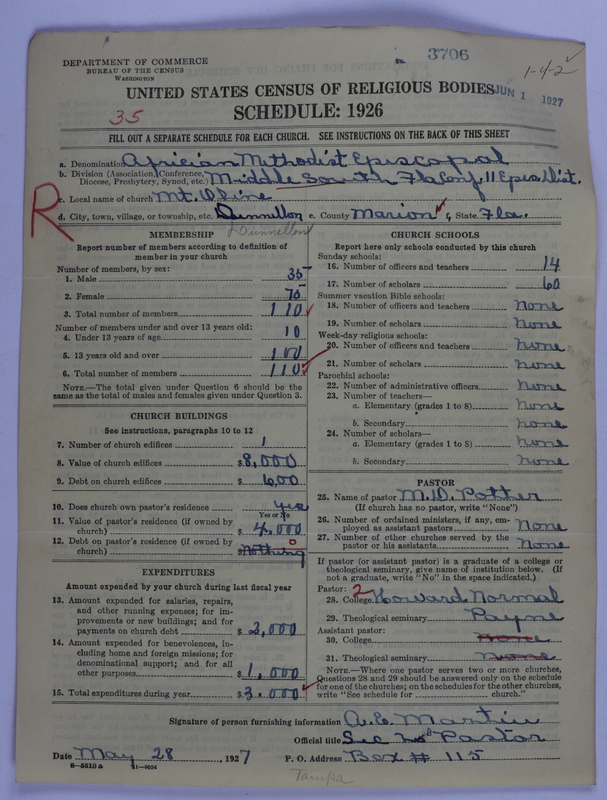 DEPARTMENT OF COMMERCE
BUREAU OF THE CENSUS
WASHINGTON
3706
1-4-2
UNITED STATES CENSUS OF RELIGIOUS BODIES
JUN 1 1927
35
SCHEDULE: 1926
FILL OUT A SEPARATE SCHEDULE FOR EACH CHURCH. SEE INSTRUCTIONS ON THE BACK OF THIS SHEET
a. Denomination African Methodist Episcopal
b. Division (Association, Conference,
Diocese, Presbytery, Synod, etc.) Middle South Fla Conf. 11 Epis. Dist.
R
c. Local name of church Mt. Oline
d. City, town, village, or township, etc. Dunnellon e. County Marion f. State Fla.
Dunnellon
MEMBERSHIP
Report number of members according to definition of
member in your church
Number of members, by sex:
1. Male 35
2. Female 75
3. Total number of members 110
Number of members under and over 13 years old:
4. Under 13 years of age 10
5. 13 years old and over 100
6. Total number of members 110
NOTE.—The total given under Question 6 should be the
same as the total of males and females given under Question 3.
CHURCH BUILDINGS
See instructions, paragraphs 10 to 12
7. Number of church edifices 1
8. Value of church edifices $8,000
9. Debt on church edifices $600
10. Does church own pastor's residence yes
Yes or No
11. Value of pastor's residence (if owned by
church) $4,000
12. Debt on pastor's residence (if owned by
church) $Nothing 0
EXPENDITURES
Amount expended by your church during last fiscal year
13. Amount expended for salaries, repairs,
and other running expenses; for im-
provements or new buildings; and for
payments on church debt $2,000
14. Amount expended for benevolences, in-
cluding home and foreign missions; for
denominational support; and for all
other purposes $1,000
15. Total expenditures during year $3.000
CHURCH SCHOOLS
Report here only schools conducted by this church
Sunday schools:
16. Number of officers and teachers 14
17. Number of scholars 60
Summer vacation Bible schools:
18. Number of officers and teachers None
19. Number of scholars None
Week-day religious schools:
20. Number of officers and teachers None
21. Number of scholars None
Parochial schools:
22. Number of administrative officers None
23. Number of teachers—
a. Elementary (grades 1 to 8) None
b. Secondary None
24. Number of scholars—
a. Elementary (grades 1 to 8) None
b. Secondary None
PASTOR
25. Name of pastor M. D. Potter
(If church has no pastor, write "None")
26. Number of ordained ministers, if any, em-
ployed as assistant pastors None
27. Number of other churches served by the
pastor or his assistants None
If pastor (or assistant pastor) is a graduate of a college or
theological seminary, give name of institution below. (If
not a graduate, write "No" in the space indicated.)
Pastor: 2
28. College Howard Normal
29. Theological seminary Payne
Assistant pastor:
30. College None
31. Theological seminary None
NOTE.—Where one pastor serves two or more churches,
Questions 28 and 29 should be answered only on the schedule
for one of the churches; on the schedules for the other churches,
write "See schedule for church."
Signature of person furnishing information A. C. Martin
Official title Sec Pastor
Date May 28, 1927 P. O. Address Box # 115
8-5513 a 11-9034
Tampa